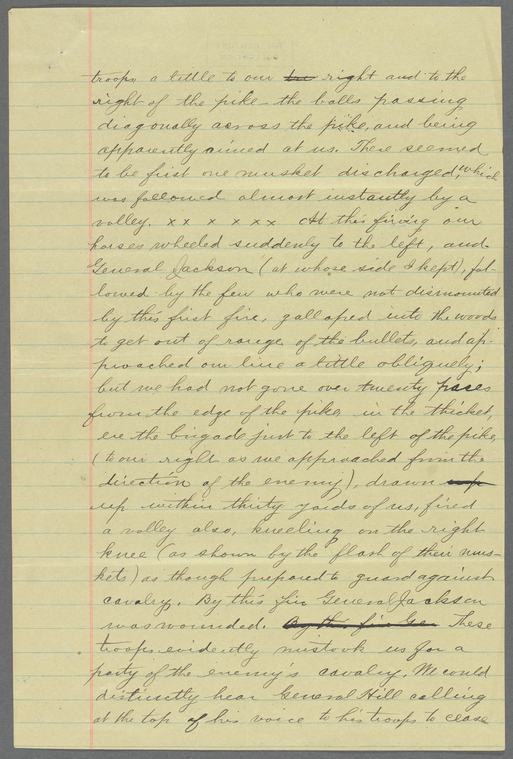 troops a little to our right and to the
right of the pike - the balls passing
diagonally across the pike, and being
apparently aimed at us. There seemed
to be first one musket discharged, which
was followed almost instantly by a
volley. x x x x x x At this firing our
horses wheeled suddenly to the left, and
General Jackson (at whose side I kept), fol-
lowed by the few who were not dismounted
by this first fire, galloped into the woods
to get out of range of the bullets, and ap-
proached our line a little obliquely;
but we had not gone over twenty paces
from the edge of the pike, in the thicket,
ere the brigade just to the left of the pike,
(to our right as we approached from the
direction of the enemy), drawn up
up within thirty yards of us, fired
a volley also, kneeling on the right
knee (as shown by the flash of their mus-
kets) as though prepared to guard against
cavalry. By this fire General Jackson
was wounded. By this fire Gen These
troops evidently mistook us for a
party of the enemy's cavalry. We could
distinctly hear General Hill calling
at the top of his voice to his troops to cease